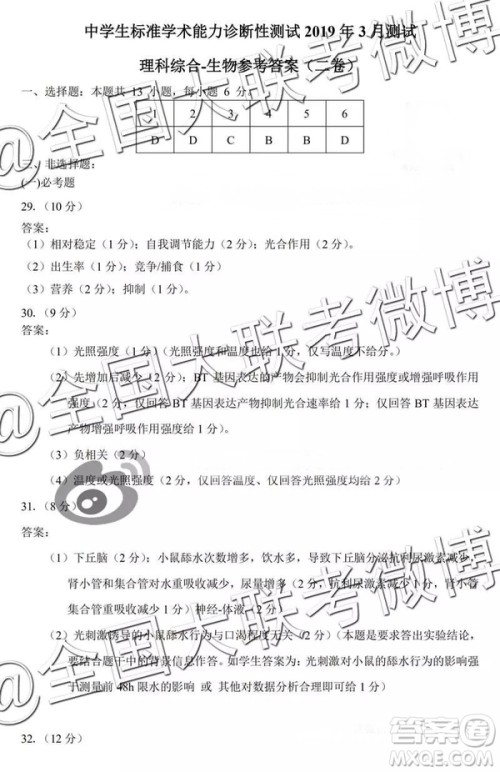 中学生标准学术能力诊断性测试 2019 年 3 月测试
理科综合-生物参考答案（二卷）
一、选择题：本题共 13 小题，每小题 6 分。
1 2 3 4 5 6
D D C B B D
三、非选择题：
(一)必考题
29.（10 分）
答案：
（1）相对稳定（1 分）；自我调节能力（2 分）；光合作用（2 分）
（2）出生率（1 分）；竞争/捕食（1 分）
（3）营养（2 分）；抑制（1 分）
30.（9 分）
答案：
（1）光照强度（1 分）（光照强度和温度也给 1 分，仅写温度不给分。）
（2）先增加后减少（2 分）；BT 基因表达的产物会抑制光合作用强度或增强呼吸
作用强度（2 分，仅回答 BT 基因表达产物抑制光合速率给 1 分；仅回答 BT 基因表达
产物增强呼吸作用强度给 1 分）
（3）负相关（2 分）
（4）温度或光照强度（2 分，仅回答温度、仅回答光照强度均给 2 分）
31.（8 分）
答案：
（1）下丘脑（2 分）；小鼠舔水次数增多，饮水多，导致下丘脑分泌抗利尿激素减少，
肾小管和集合管对水重吸收减少，尿量增多（2 分，抗利尿激素减少 1 分，肾小管
集合管重吸收减少 1 分）神经-体液（2 分）
（2）光刺激诱导的小鼠舔水行为与口渴程度无关（2 分）（本题是要求答出实验结论，
要结合题干中的背景信息作答。如学生答成 光刺激对小鼠的舔水行为的影响强于
测量前 48h 限水的影响 或 其他只描述实验现象的给 1 分）
32.（12 分）
@全国大联考微博
@全国大联考微博
@全国大联考微博
答案圈
MXQE.COM